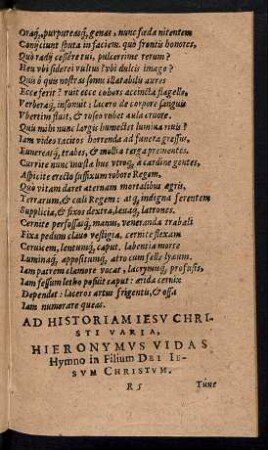 Oraq́;, purpureasq́; genas, nunc fœda nitentem
Conijciunt sputa in faciem. quò frontis honores,
Quò radij cessêre tui, pulcerrime rerum?
Heu ubi siderei vultus? ubi dulcis imago?
Quis ô quis nostras sonus illætabilis aures
Ecce ferit? ruit ecce cohors accincta flagello,
Verberaq́; insonuit: lacero de corpore sanguis
Vbertim fluit, & roseo rubet aula cruore.
Quis mihi nunc largis humectet lumina riuis?
Iam video tacitos horrenda ad funera gressus,
Funereasq́; trabes, & mollia terga prementes.
Currite nunc mœstæ huc vtroq́; a cardine gentes,
Aspicite erecto suffixum robore Regem,
Quo vitam daret æternam mortalibus ægris,
Terrarum, & cæli Regem: atq́; indigna ferentem
Supplicia, & fixos dextra, læuaq́; latrones.
Cernite perfossasq́; manus, veneranda trabali
Fixa pedum clauo vestigia, cernite flexam
Ceruicem, lentumq́; caput, labentia morte
Luminaq́;, appositumq́; atro cum felle lyæum.
Iam patrem clamore vocat, lacrymisq́; profusis,
Iam fessum letho posuit caput: arida ceruix
Dependet: laceros artus frigentis, & ossa
Iam numerare queas.
AD HISTORIAM IESV CHRI-
STI VARIA,
HIERONYMVS VIDAS
Hymno in Filium DEI IE-
SVM CHRISTVM.
R 5 Tune